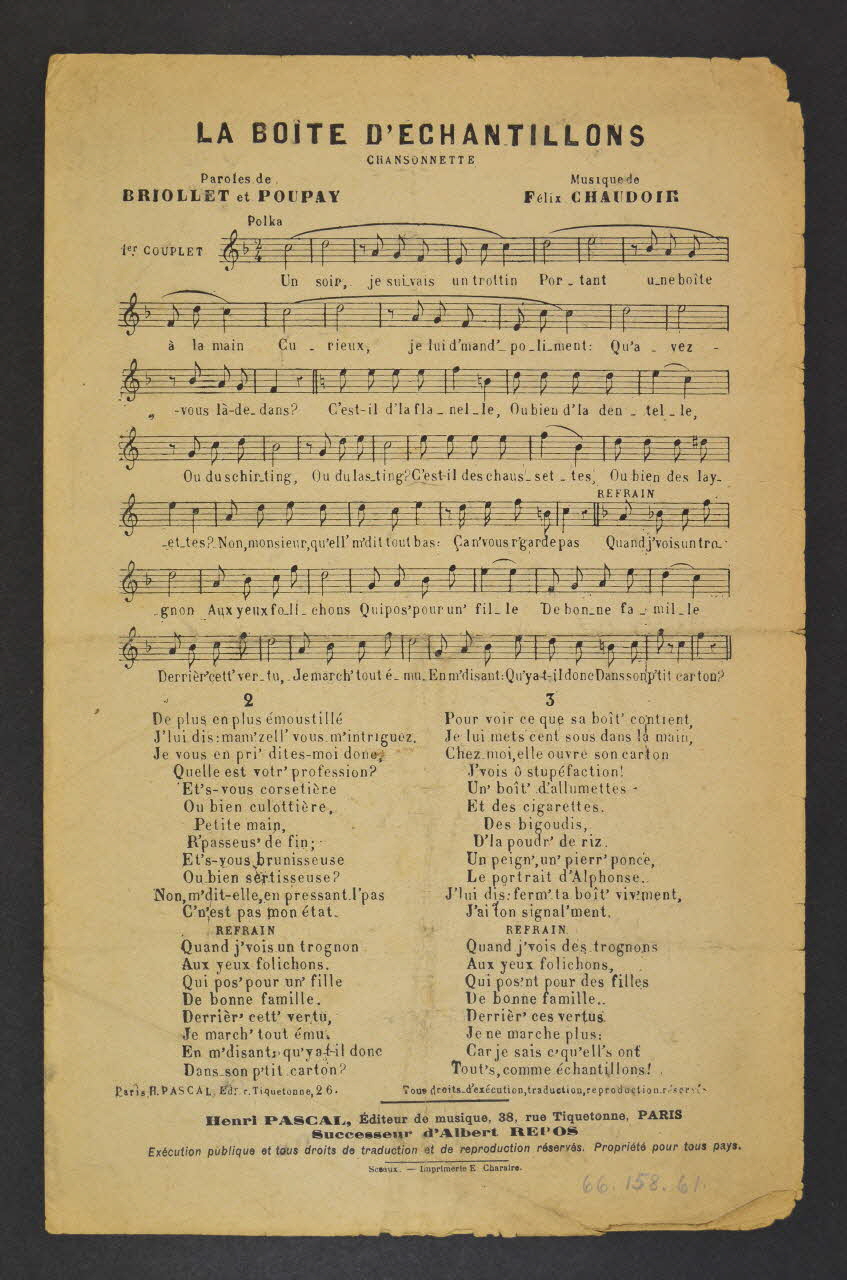 LA BOÎTE D'ÉCHANTILLONS
CHANSONNETTE
Paroles de
BRIOLLET et POUPAY
Musique de
Félix CHAUDOIR
Polka
1er COUPLET
Un soir, je suivais un trottin Por_tant u_ne boîte
à la main Cu_rieux, je lui d'mand'_po_li_ment: Qu'a_vez_
-vous là-de_dans? C'est-il d'la fla_nel_le, Ou bien d'la den_tel_le,
Ou du schir_ting, Ou du las_ting? C'est-il des chaus_set_tes, Ou bien des lay_
_et_tes? Non, monsieur, qu'ell' m'dit tout bas: Ça n'vous r'garde pas
REFRAIN
Quand j'vois un tro_
_gnon Aux yeux fo_li_chons Qui pos' pour un' fil_le De bon_ne fa_mil_le
Derrièr' cett' ver_tu, Je march' tout é_mu_ En m'disant: Qu'y a-t-il donc Dans son p'tit carton?
2
De plus en plus émoustillé
J'lui dis: mam'zell' vous m'intriguez.
Je vous en pri' dites-moi donc,
Quelle est votr' profession?
Et's-vous corsetière
Ou bien culottière,
Petite main,
R'passeus' de fin;
Et's-vous brunisseuse
Ou bien sertisseuse?
Non, m'dit-elle, en pressant l'pas
C'n'est pas mon état.
REFRAIN
Quand j'vois un trognon
Aux yeux folichons.
Qui pos' pour un' fille
De bonne famille.
Derrièr' cett' vertu,
Je march' tout ému.
En m'disant: qu'y a-t-il donc
Dans son p'tit carton?
3
Pour voir ce que sa boît' contient,
Je lui mets cent sous dans la main,
Chez moi, elle ouvre son carton
J'vois ô stupéfaction!
Un' boît' d'allumettes
Et des cigarettes.
Des bigoudis,
D'la poudr' de riz.
Un peign', un' pierr' ponce,
Le portrait d'Alphonse.
J'lui dis: ferm' ta boît' viv'ment,
J'ai ton signal'ment.
REFRAIN
Quand j'vois des trognons
Aux yeux folichons,
Qui pos'nt pour des filles
De bonne famille..
Derrièr' ces vertus
Je ne marche plus:
Car je sais c'qu'ell's ont
Tout's, comme échantillons!
Paris H. PASCAL, Edr. r. Tiquetonne, 26.
Tous droits d'exécution, traduction, reproduction réservés
Henri PASCAL, Éditeur de musique, 38, rue Tiquetonne, PARIS
Successeur d'Albert REPOS
Exécution publique et tous droits de traduction et de reproduction réservés. Propriété pour tous pays.
Sceaux. — Imprimerie E Charaire.
66.158.61.